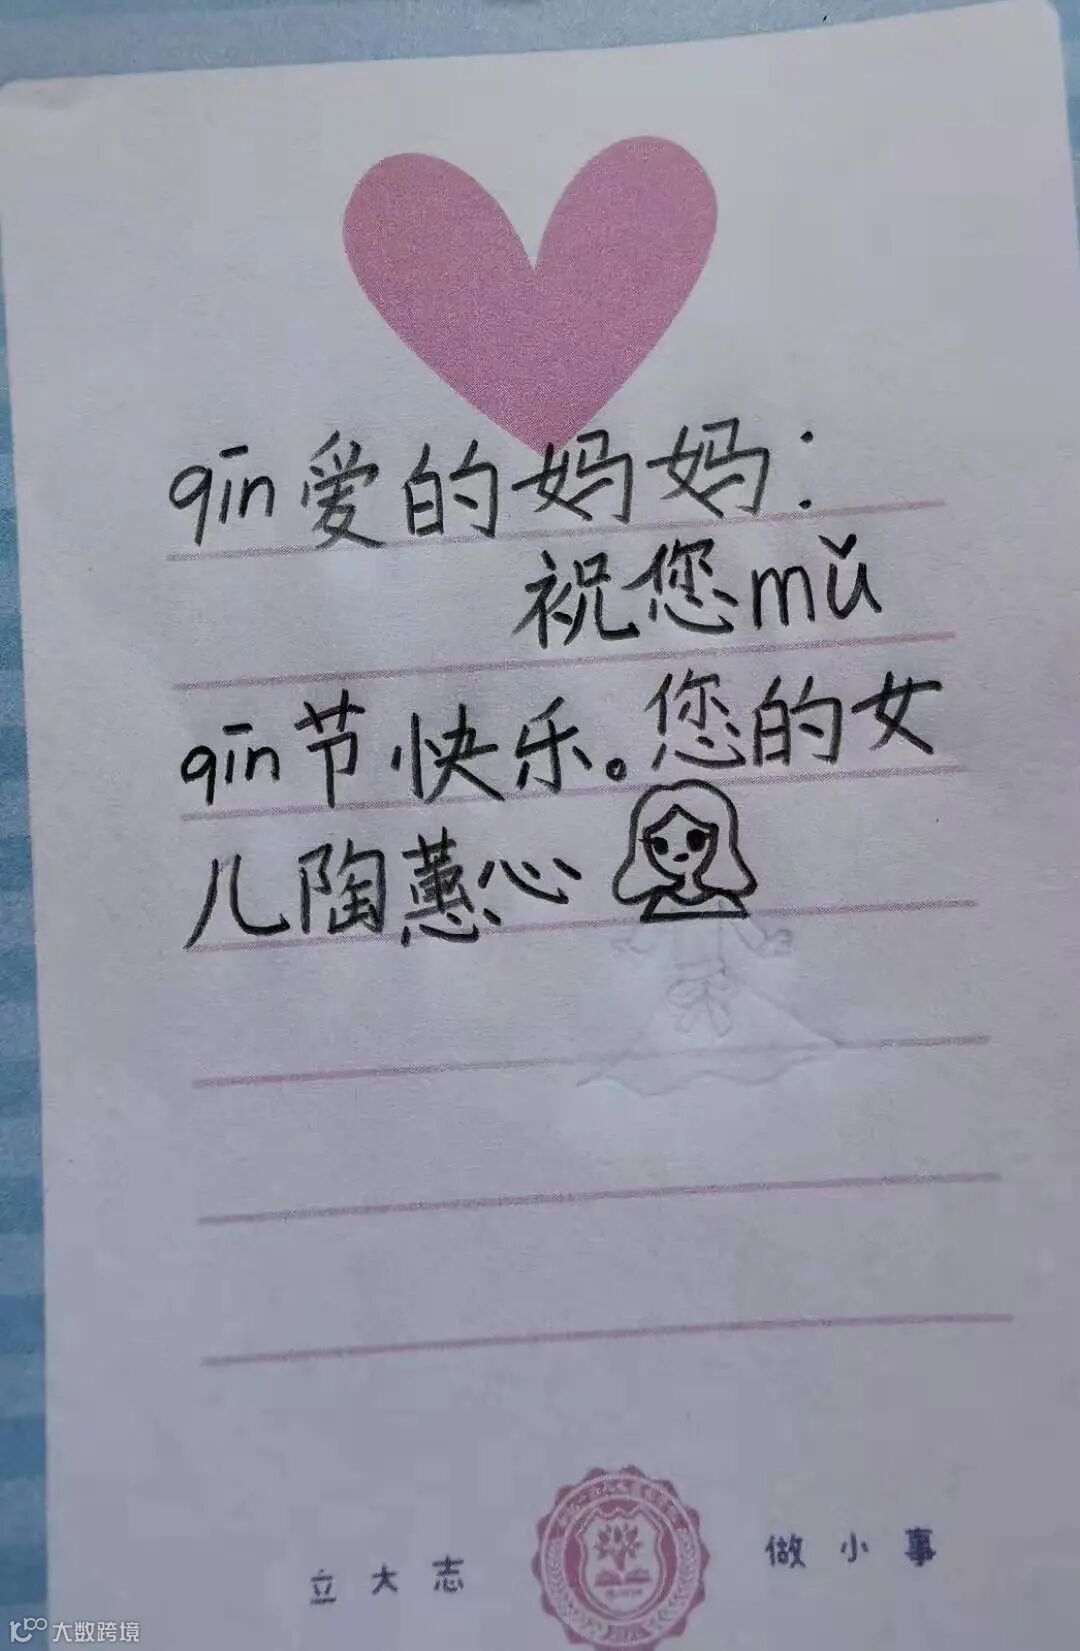 qīn爱的妈妈：
祝您mǔ
qīn节快乐。您的女
儿陶蕙心
立大志 做小事
大数跨境